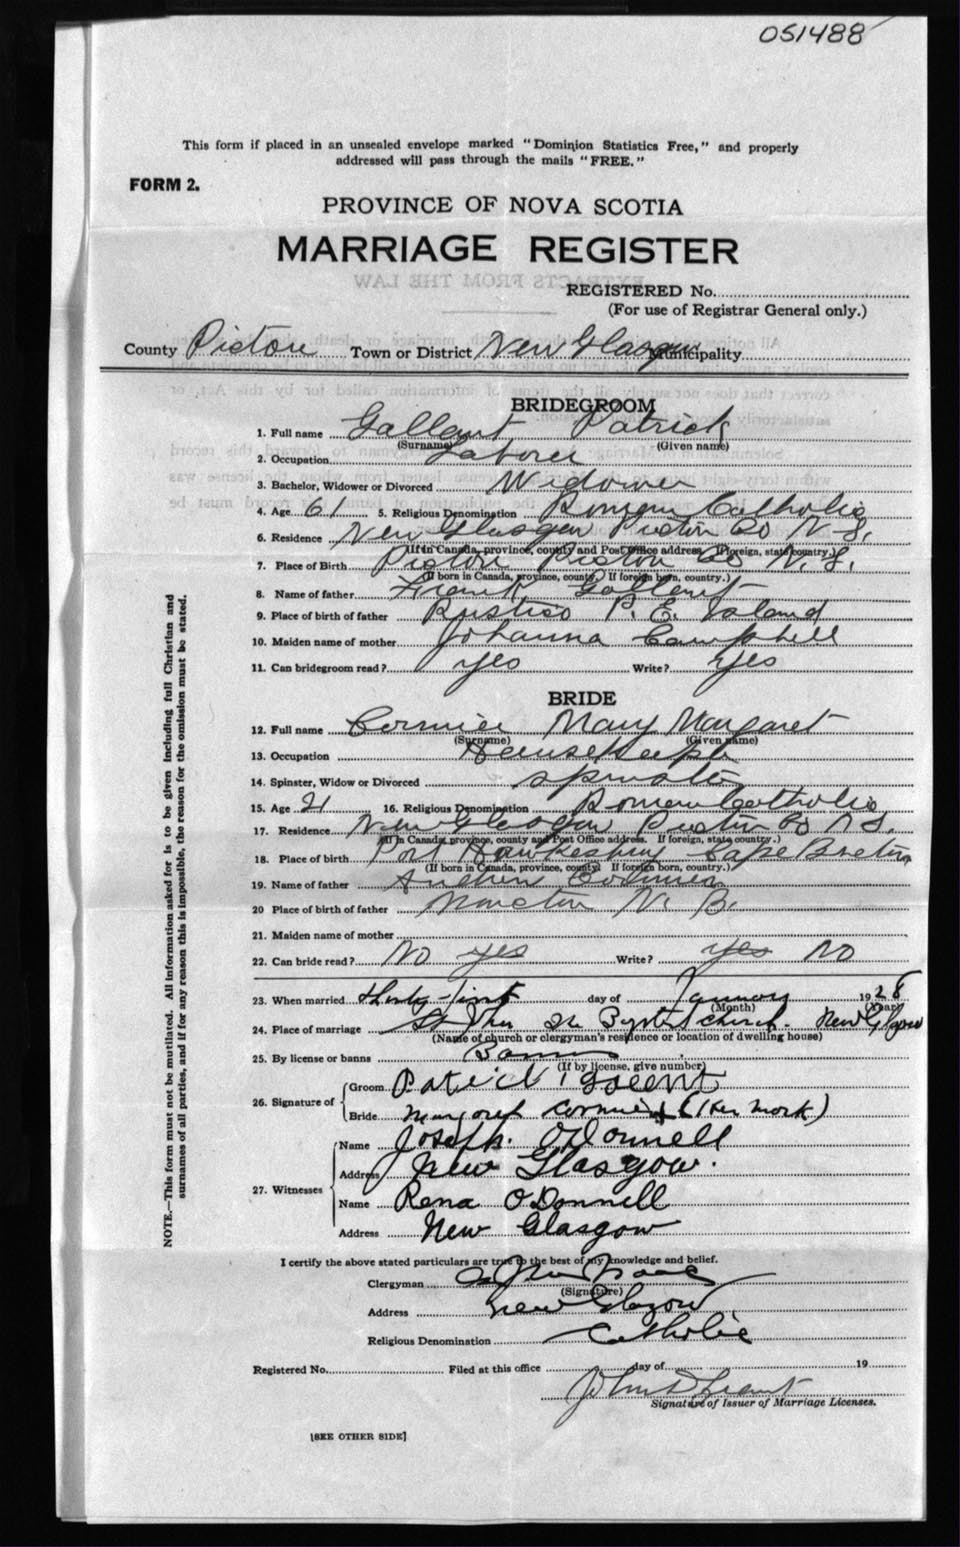 051488
This form if placed in an unsealed envelope marked "Dominion Statistics Free," and properly
addressed will pass through the mails "FREE."
FORM 2.
PROVINCE OF NOVA SCOTIA
MARRIAGE REGISTER
EXTRACTS FROM THE LAW
REGISTERED No.
(For use of Registrar General only.)
County Pictou Town or District New Glasgow Municipality
BRIDEGROOM
1. Full name Gallant Patrick
(Surname) (Given name)
2. Occupation Laborer
3. Bachelor, Widower or Divorced Widower
4. Age 61 5. Religious Denomination Roman Catholic
6. Residence New Glasgow Pictou Co N.S.
(If in Canada, province, county and Post Office address. If foreign, state country.)
7. Place of Birth Pictou Pictou Co N.S.
(If born in Canada, province, county.) If foreign born, country.)
8. Name of father Frank Gallant
9. Place of birth of father Rustico P. E. Island
10. Maiden name of mother Johanna Campbell
11. Can bridegroom read? yes Write? yes
BRIDE
12. Full name Cormier Mary Margaret
(Surname) (Given name)
13. Occupation Housekeeper
14. Spinster, Widow or Divorced Spinster
15. Age 21 16. Religious Denomination Roman Catholic
17. Residence New Glasgow Pictou Co N S.
(If in Canada, province, county and Post Office address. If foreign, state country.)
18. Place of birth Port Hawkesbury Cape Breton
(If born in Canada, province, county. If foreign born, country.)
19. Name of father Andrew Cormier
20 Place of birth of father Moncton N. B.
21. Maiden name of mother
22. Can bride read? No yes Write? yes No
23. When married thirty-first day of January 1928
(Month) (Year)
24. Place of marriage St John the Baptist church. New Glasgow
(Name of church or clergyman's residence or location of dwelling house)
25. By license or banns Banns
(If by license, give number)
26. Signature of Groom Patrick
Bride Margaret Cormier X (Her mark)
27. Witnesses Name Joseph. O'Donnell
Address New Glasgow.
Name Rena O'Donnell
Address New Glasgow
I certify the above stated particulars are true to the best of my knowledge and belief.
Clergyman
(Signature)
Address New Glasgow
Religious Denomination Catholic
Registered No. Filed at this office day of 19
John D Grant
Signature of Issuer of Marriage Licenses.
[SEE OTHER SIDE]
NOTE.—This form must not be mutilated. All information asked for is to be given including full Christian and
surnames of all parties, and if for any reason this is impossible, the reason for the omission must be stated.